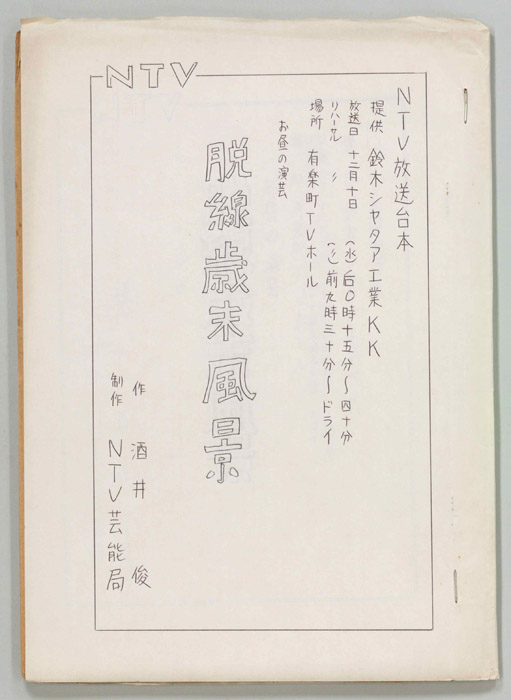 NTV
NTV放送台本
提供 鈴木シヤタア工業KK
放送日 十二月十日 (水)后〇時十五分〜四十分
リハーサル 〃 (〃)前九時三十分〜ドライ
場所 有楽町TVホール
お昼の演芸
脱線歳末風景
作 酒井 俊
制作 NTV芸能局